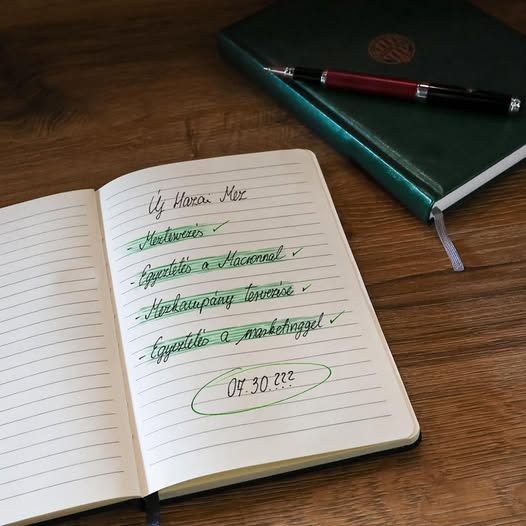 Új Hazai Mez
- Meztervezés ✓
- Egyeztetés a Macronnal ✓
- Mezkampány tervezése ✓
- Egyeztetés a marketinggel ✓
07.30.???